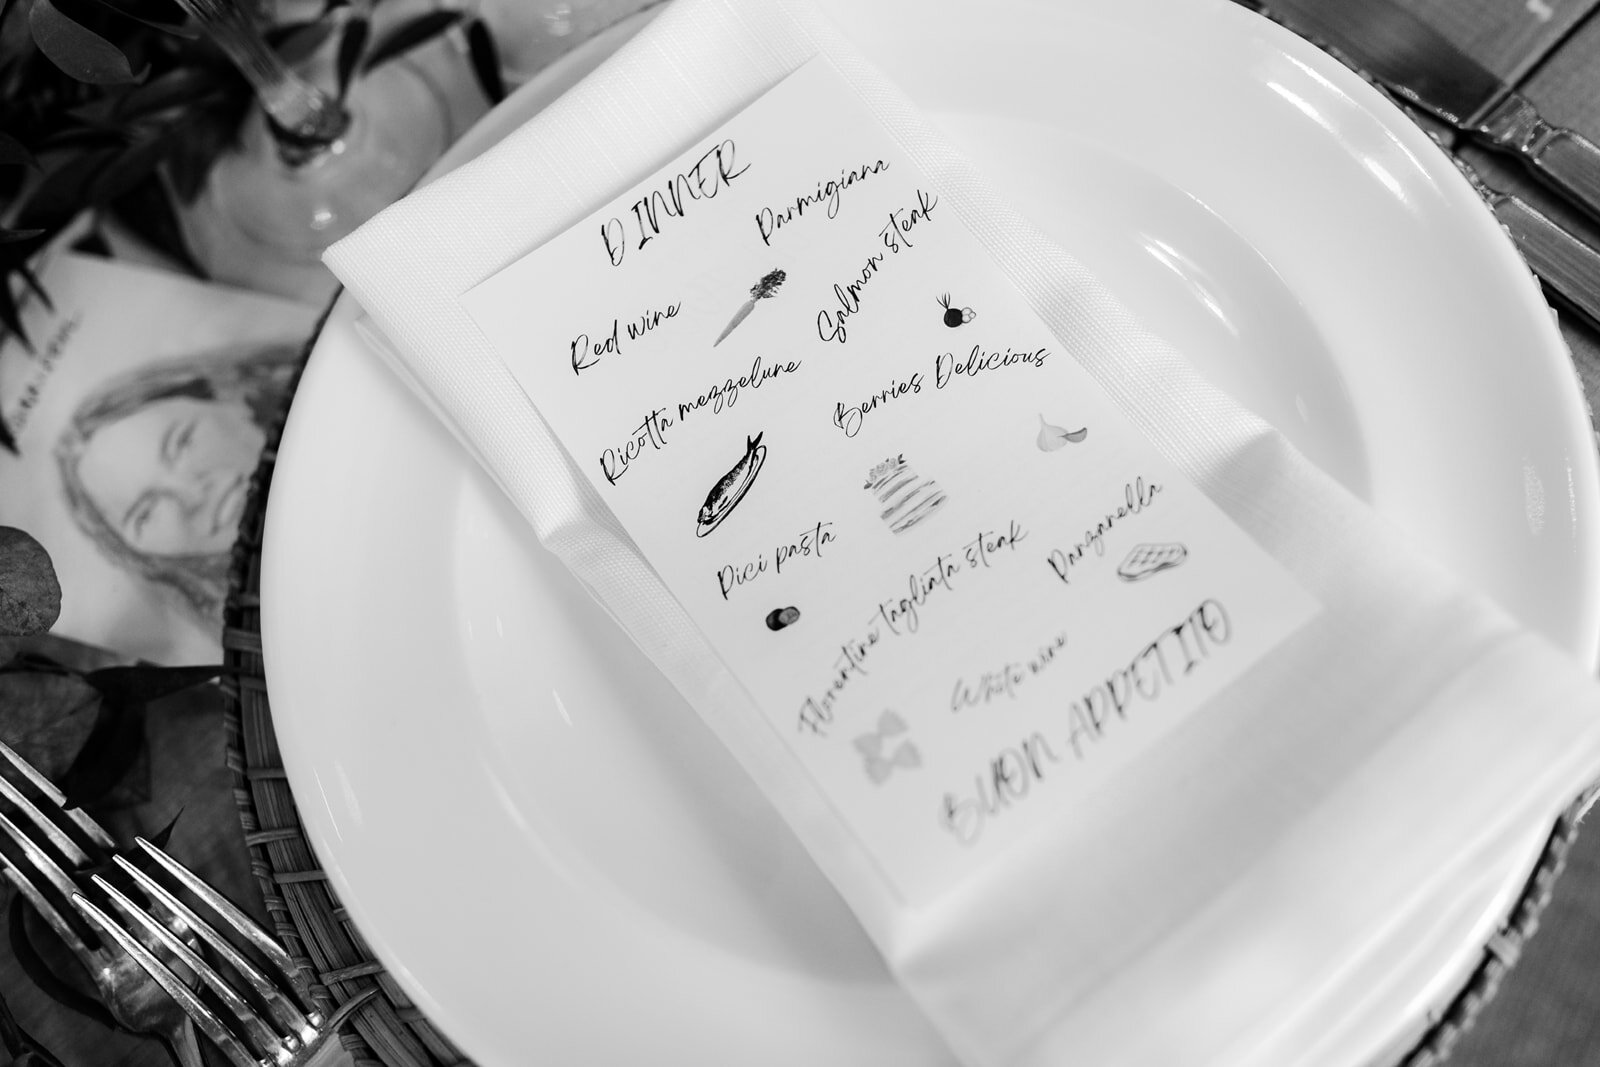 DINNER
Parmigiana
Red wine
Salmon steak
Ricotta mezzelune
Berries Delicious
Pici pasta
Panzanella
Florentine tagliata steak
White wine
BUON APPETITO